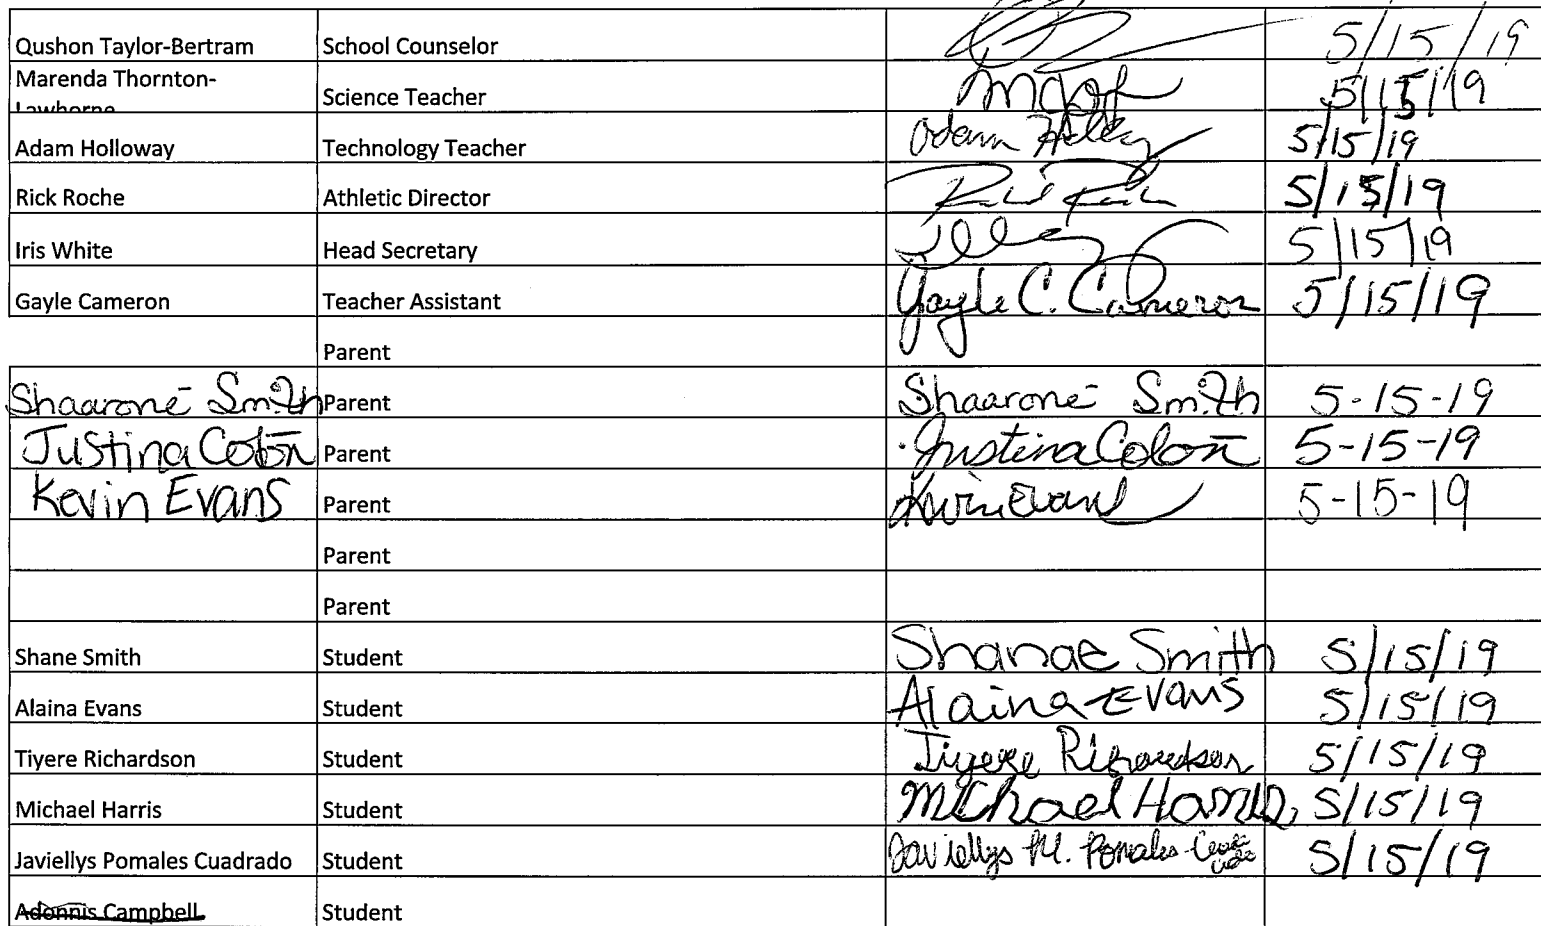 Qushon Taylor-Bertram School Counselor 5/15/19
Marenda Thornton-
Lawhorne Science Teacher 5/15/19
Adam Holloway Technology Teacher Adam 5/15/19
Rick Roche Athletic Director 5/15/19
Iris White Head Secretary 5/15/19
Gayle Cameron Teacher Assistant Gayle C. Cameron 5/15/19
Parent
Shaaroné Smith Parent Shaaroné Smith 5-15-19
Justina Colon Parent Justina Colon 5-15-19
Kevin Evans Parent Kevin Evans 5-15-19
Parent
Parent
Shane Smith Student Shanae Smith 5/15/19
Alaina Evans Student Alaina Evans 5/15/19
Tiyere Richardson Student Tiyere Richardson 5/15/19
Michael Harris Student Michael Harris 5/15/19
Javiellys Pomales Cuadrado Student Javiellys M. Pomales 5/15/19
Adonnis Campbell Student